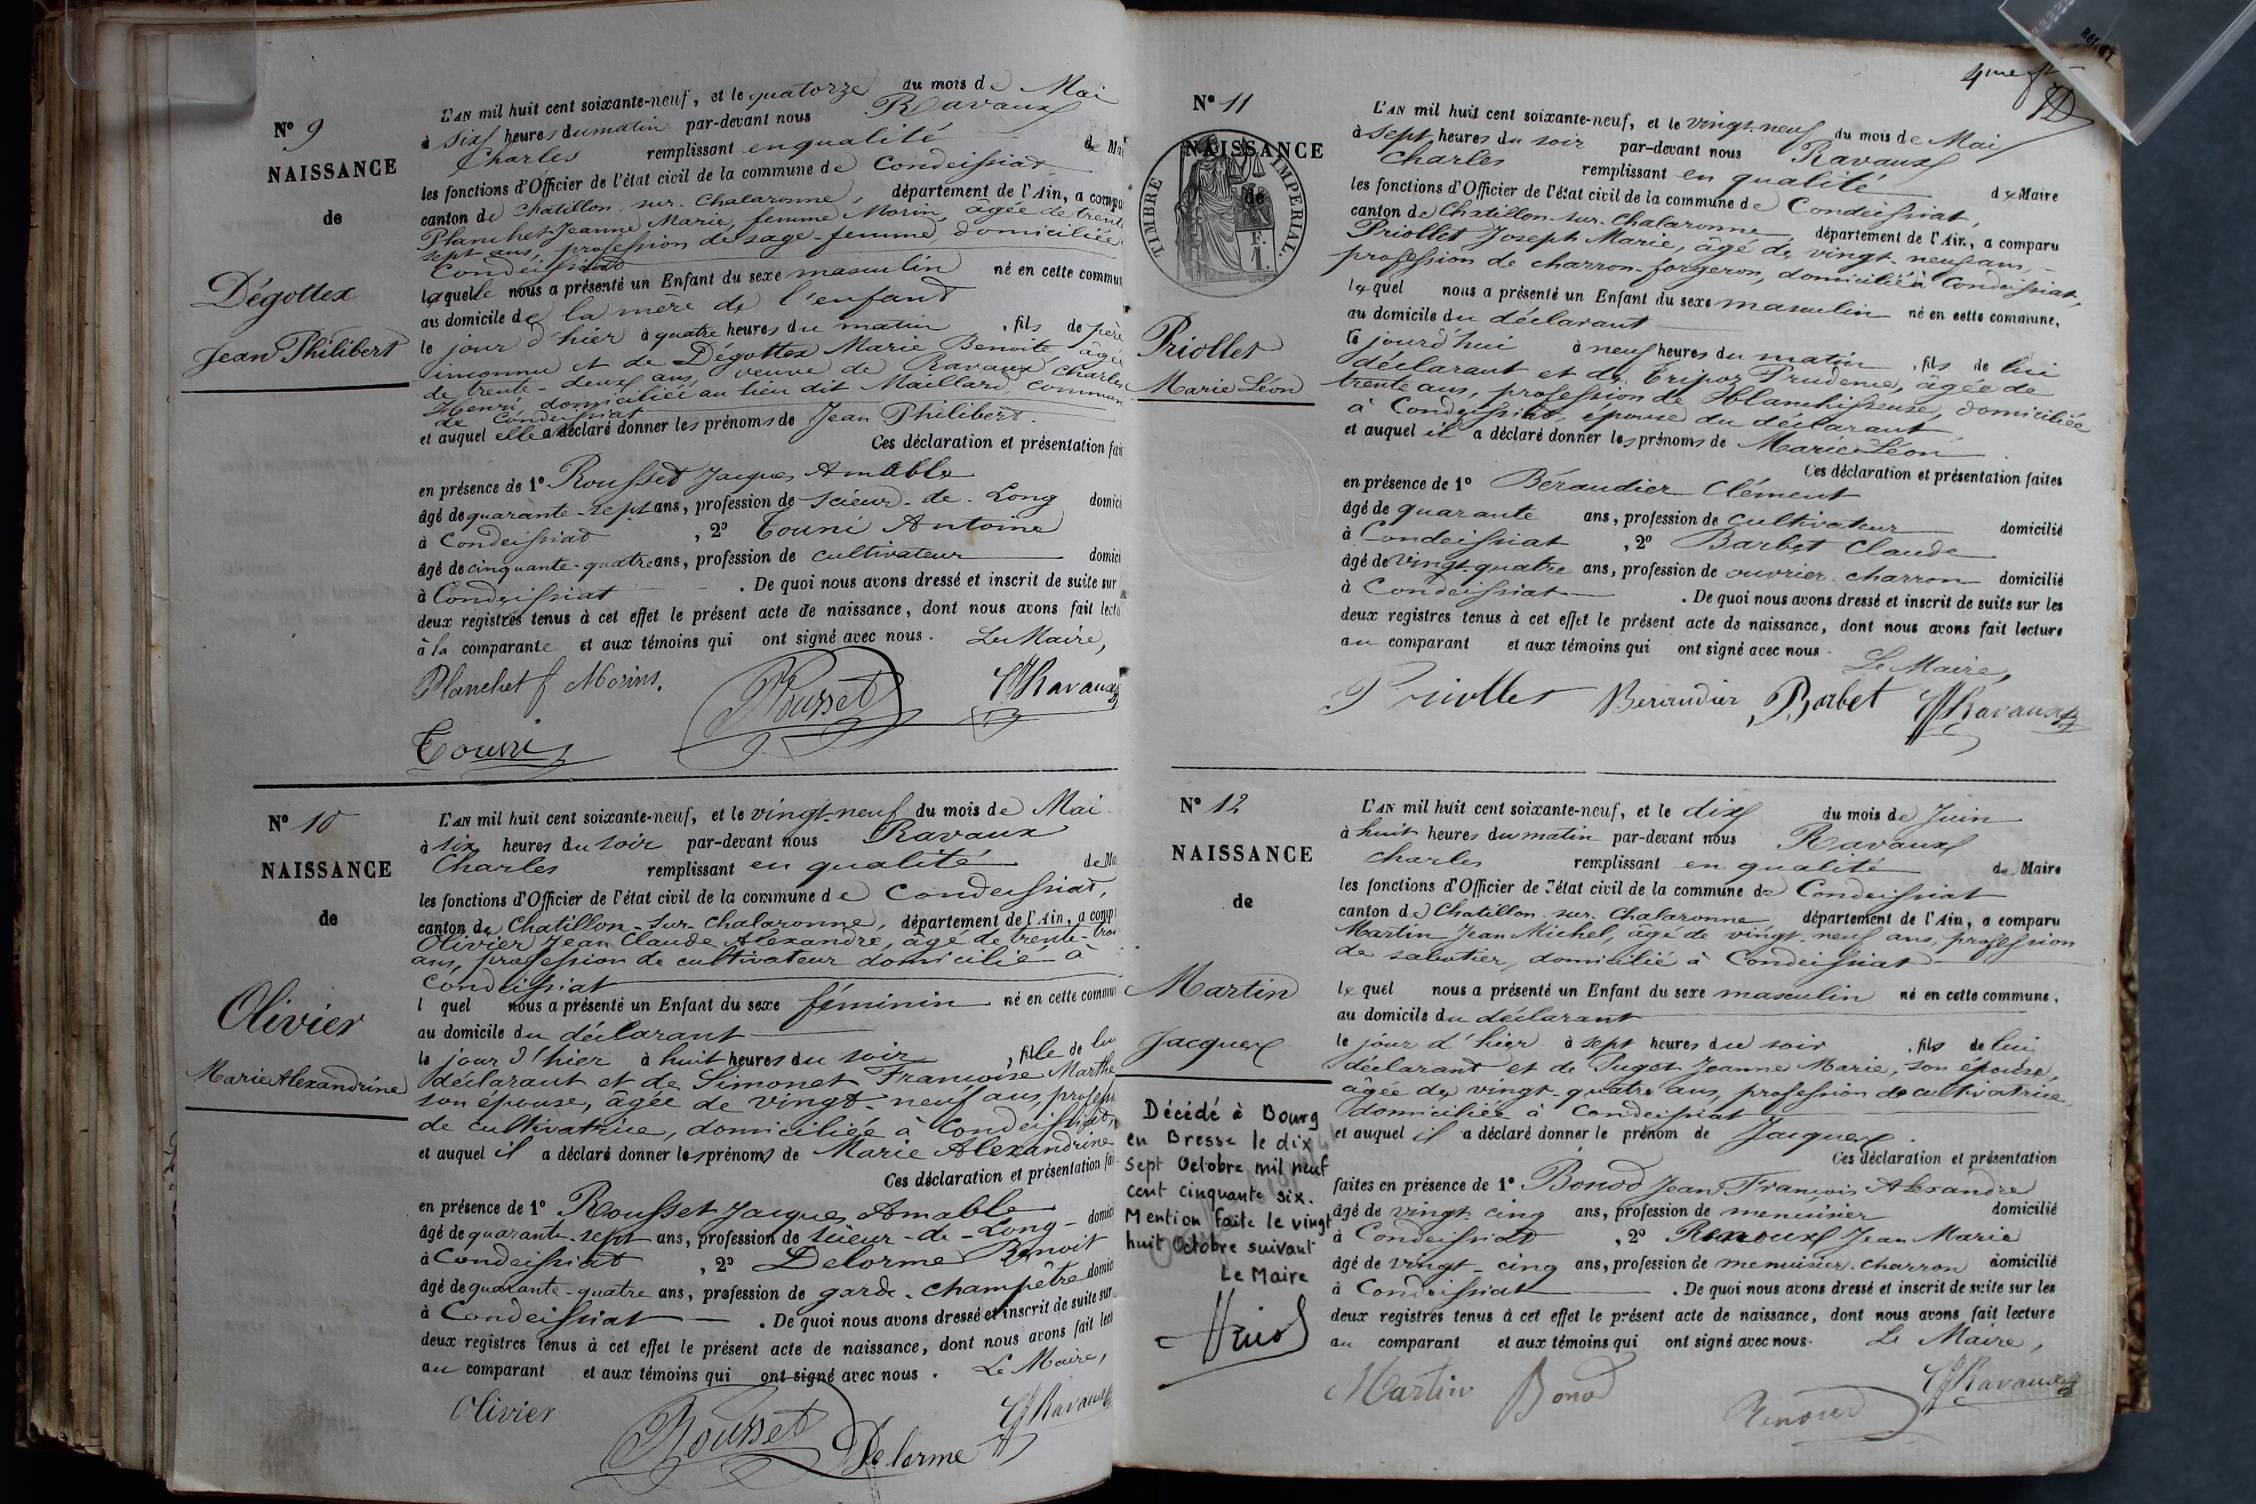 Nº 9
NAISSANCE
de
Dégottex
Jean Philibert
L'AN mil huit cent soixante-neuf, et le quatorze du mois de Mai
à six heures du matin par-devant nous Ravaux
Charles remplissant en qualité de Mai
les fonctions d'Officier de l'état civil de la commune de Condeissiat
canton de Chatillon-sur-Chalaronne, département de l'Ain, a compa
Planchet Jeanne Marie, femme Morin, âgée de trente
sept ans, profession de sage-femme, domiciliée
Condeissiat
laquelle nous a présenté un Enfant du sexe masculin né en cette commu
au domicile de la mère de l'enfant
le jour d'hier à quatre heures du matin, fils de père
inconnu et de Dégottex Marie Benoite âgée
de trente-deux ans, veuve de Ravaux Charles
Henri, domiciliée au lieu dit Maillard, commun
de Condeissiat
et auquel elle a déclaré donner les prénoms de Jean Philibert.
Ces déclaration et présentation fai
en présence de 1º Rousset Jacques Amable
âgé de quarante-sept ans, profession de scieur-de-Long domici
à Condeissiat, 2º Touni Antoine
âgé de cinquante-quatre ans, profession de cultivateur domici
à Condeissiat. De quoi nous avons dressé et inscrit de suite sur
deux registres tenus à cet effet le présent acte de naissance, dont nous avons fait lectu
à la comparante et aux témoins qui ont signé avec nous. Le Maire,
Planchet f Morin. Rousset Ravaux
Touni
Nº 10
NAISSANCE
de
Olivier
Marie Alexandrine
L'AN mil huit cent soixante-neuf, et le vingt-neuf du mois de Mai
à six heures du soir par-devant nous Ravaux
Charles remplissant en qualité de Ma
les fonctions d'Officier de l'état civil de la commune de Condeissiat,
canton de Chatillon-sur-Chalaronne, département de l'Ain, a comp
Olivier Jean Claude Alexandre, âgé de trente-troi
ans, profession de cultivateur domicilié à
Condeissiat
l quel nous a présenté un Enfant du sexe féminin né en cette commu
au domicile du déclarant
le jour d'hier à huit heures du soir, fille de lui
déclarant et de Simonet Françoise Marthe
son épouse, âgée de vingt-neuf ans, profess
de cultivatrice, domiciliée à Condeissiat,
et auquel il a déclaré donner les prénoms de Marie Alexandrine
Ces déclaration et présentation fai
en présence de 1º Rousset Jacques Amable
âgé de quarante-sept ans, profession de scieur-de-Long domici
à Condeissiat, 2º Delorme Benoit
âgé de quarante-quatre ans, profession de garde-champêtre domici
à Condeissiat. De quoi nous avons dressé et inscrit de suite sur
deux registres tenus à cet effet le présent acte de naissance, dont nous avons fait lect
au comparant et aux témoins qui ont signé avec nous. Le Maire,
Olivier Rousset Delorme Ravaux
4me ft
Nº 11
NAISSANCE
de
TIMBRE IMPERIAL.
F.
1.
Priollet
Marie Léon
L'AN mil huit cent soixante-neuf, et le vingt-neuf du mois de Mai
à sept heures du soir par-devant nous Ravaux
Charles remplissant en qualité de Maire
les fonctions d'Officier de l'état civil de la commune de Condeissiat,
canton de Chatillon-sur-Chalaronne, département de l'Ain, a comparu
Priollet Joseph Marie, âgé de vingt-neuf ans,
profession de charron-forgeron, domicilié à Condeissiat,
lequel nous a présenté un Enfant du sexe masculin né en cette commune,
au domicile du déclarant
le jourd'hui à neuf heures du matin, fils de lui
déclarant et de Tripoz Prudence, âgée de
trente ans, profession de Blanchisseuse, domiciliée
à Condeissiat, épouse du déclarant
et auquel il a déclaré donner les prénoms de Marie Léon.
Ces déclaration et présentation faites
en présence de 1º Béraudier Clément
âgé de quarante ans, profession de cultivateur domicilié
à Condeissiat, 2º Barbet Claude
âgé de vingt-quatre ans, profession de ouvrier charron domicilié
à Condeissiat. De quoi nous avons dressé et inscrit de suite sur les
deux registres tenus à cet effet le présent acte de naissance, dont nous avons fait lecture
au comparant et aux témoins qui ont signé avec nous.
Le Maire,
Priollet Beraudier Barbet Ravaux
Nº 12
NAISSANCE
de
Martin
Jacques
Décédé à Bourg
en Bresse le dix
sept Octobre mil neuf
cent cinquante six.
Mention faite le vingt
huit Octobre suivant
Le Maire
L'AN mil huit cent soixante-neuf, et le dix du mois de Juin
à huit heures du matin par-devant nous Ravaux
Charles remplissant en qualité de Maire
les fonctions d'Officier de l'état civil de la commune de Condeissiat
canton de Chatillon-sur-Chalaronne département de l'Ain, a comparu
Martin Jean Michel, âgé de vingt-neuf ans, profession
de sabotier, domicilié à Condeissiat
lequel nous a présenté un Enfant du sexe masculin né en cette commune,
au domicile du déclarant
le jour d'hier à sept heures du soir, fils de lui
déclarant et de Pugot Jeanne Marie, son épouse,
âgée de vingt-quatre ans, profession de cultivatrice
domiciliée à Condeissiat
et auquel il a déclaré donner le prénom de Jacques.
Ces déclaration et présentation
faites en présence de 1º Bonod Jean François Alexandre
âgé de vingt-cinq ans, profession de menuisier domicilié
à Condeissiat, 2º Renoux Jean Marie
âgé de vingt-cinq ans, profession de menuisier-charron domicilié
à Condeissiat. De quoi nous avons dressé et inscrit de suite sur les
deux registres tenus à cet effet le présent acte de naissance, dont nous avons fait lecture
au comparant et aux témoins qui ont signé avec nous. Le Maire,
Martin Bonod Renoux Ravaux